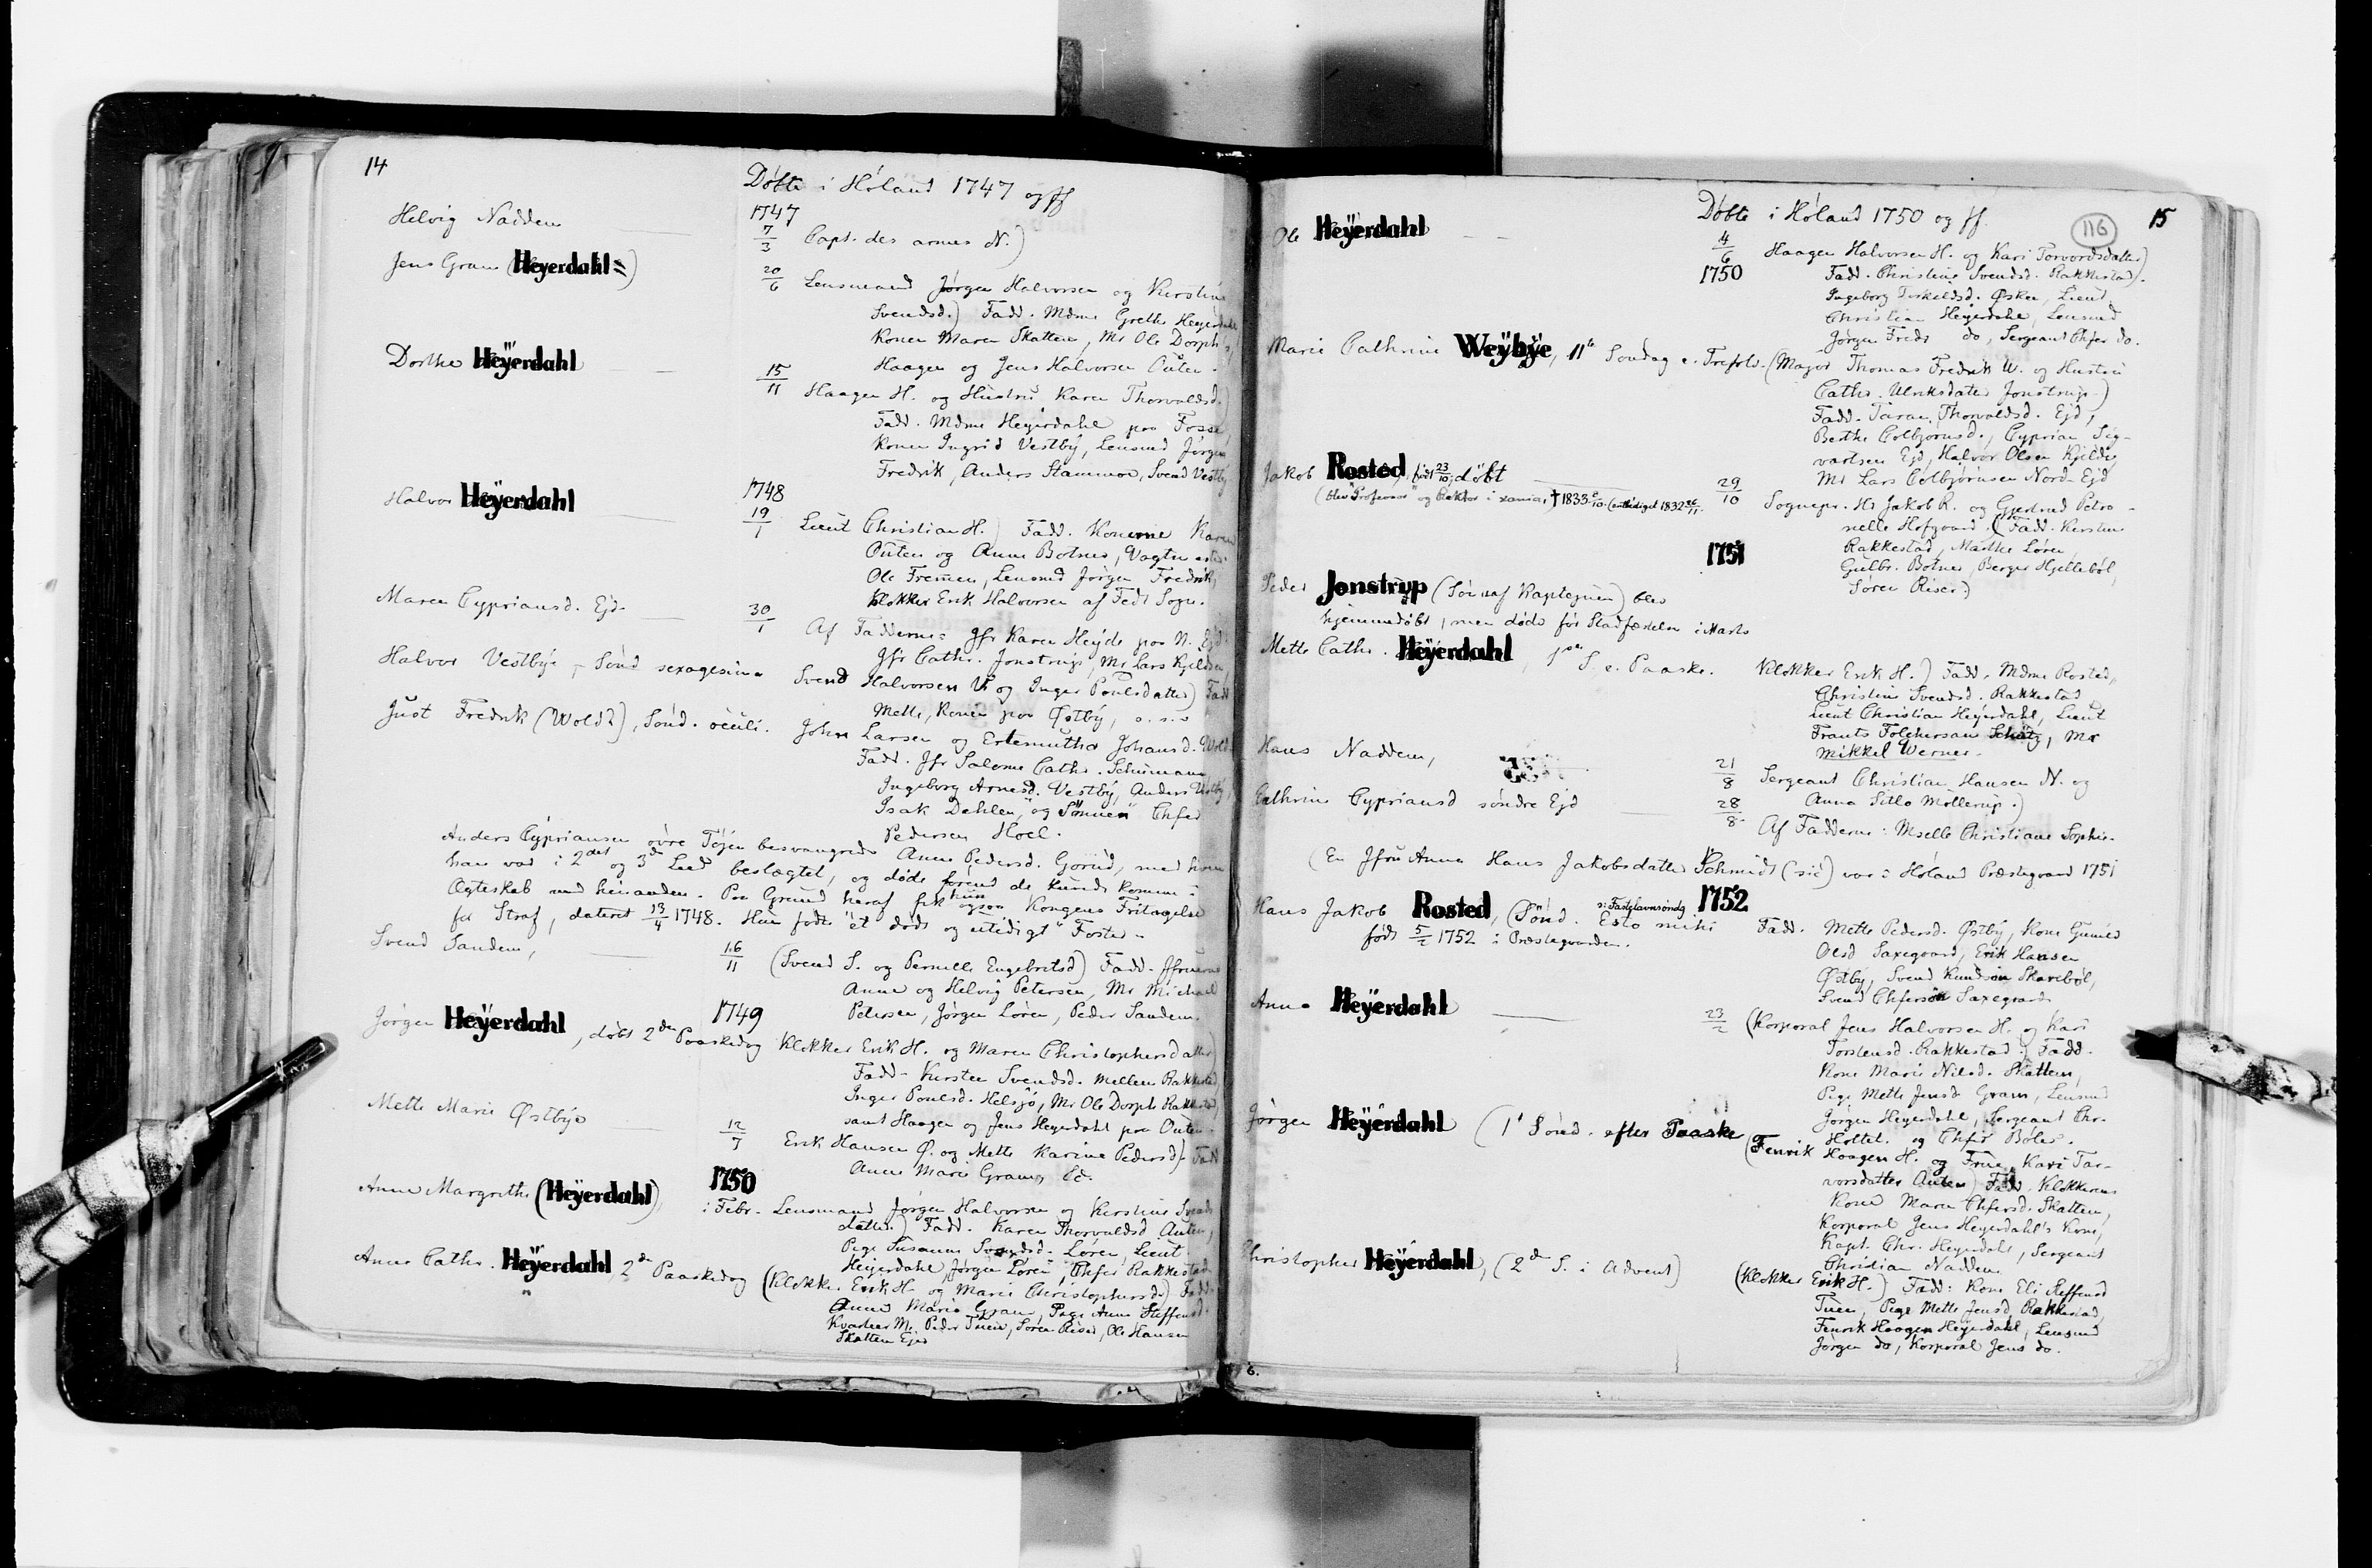 14
Døbte i Høland 1747 og ff
Helvig Naddem
1747
7/3 Capt. des armes N.)
Jens Gram (Heyerdahl)
20/6 Lensmand Jørgen Halvorsen og Kirstine
Svendsd.) Fadd. Mdme Grethe Heyerdahl
Konen Maren Skatten, Mr Ole Dorph
Haagen og Jens Halvorsen Outen.
Dorthe Heÿerdahl
15/11 Haagen H. og Hustru Karen Thorvaldsd.)
Fadd. Mdme Heyerdahl paa Fosse
Konen Ingrid Vestbÿ, Lensmd Jørgen
Fredrik, Anders Stammoe, Svend Vestby
Halvor Heÿerdahl
1748
19/1 Lieut Christian H.) Fadd. Konerne Karen
Outen og Anne Botner, Vagtm
Ole Fremen, Lensmd Jørgen Fredrik,
Klokker Erik Halvorsen af Fedt Sogn.
Maren Cypriansd. Ejd
30/1 Af Fadderne: Jfr Karen Heyde paa N. Ejd
Jfr Cathr. Jonstrup, Mr Lars Kjelden
Halvor Vestbÿe, Sønd sexagesima Svend Halvorsen V. og Inger Poulsdatter) Fadd
Mette, Konen paa Østbÿ, o.s.v
Just Fredrik (Wold?), Sønd. oculi. John Larsen og Ertemutha Johansd. Wold.
Fadd. Jfr Salome Cathr. Schumann
Ingeborg Arnesd. Vestbÿ, Anders Vestby,
Isak Dehlen, og "Sønnen" Chfer
Pedersen Hoel.
Anders Cÿpriansen øvre Tøjen besvangrede Anne Pedersd. Gorud, med hvem
han var i 2det og 3de Led beslægtet, og døde førend de kunde komme i
Ægteskab med hinanden. Paa Grund heraf fik hun ogsaa Kongens Fritagelse
for Straf, dateret 13/4 1748. Hun fødte "et dødt og utidigt" Foster.
Svend Sandem,
16/11 (Svend S. og Pernille Engebretsd) Fadd. Jfruerne
Anne og Helvig Petersen, Mr Michael
Petersen, Jørgen Løren, Peder Sandem.
1749
Jørgen Heÿerdahl, døbt 2den Paaskedag Klokker Erik H. og Maren Christophersdatter)
Fadd. Kirsten Svendsd. Mellem Rakkestad
Inger Poulsd. Helsjø, Mr Ole Dorph Rakkestad,
samt Haagen og Jens Heyerdahl paa Outen.
Mette Marie Østbÿe
12/7 Erik Hansen Ø. og Mette Karine Pedersd). Fadd
Anne Marie Gram, &c.
1750
Anne Margrethe (Heÿerdahl), i Febr. Lensmand Jørgen Halvorsen og Kirstine Svends
datter.) Fadd. Karen Thorvaldsd Auten,
Pige Susanne Svendsd. Løren, Lieut
Heyerdahl, Jørgen Løren, Chfer Rakkestad
Anne Cathr. Heÿerdahl 2den Paaskedag (Klokker Erik H. og Marie Christophersd.) Fadd.
Anne Marie Gram, Pige Anne Steffensd.
Kvarteer Mr Peder Tueen, Søren Riser, Ole Hansen
Skatten Ejer
Døbte i Høland 1750 og ff.
116
15
Ole Heÿerdahl
4/6 Haagen Halvorsen H. og Kari Torvordsdatter)
1750 Fadd. Christine Svendsd. Rakkestad.
Ingeborg Torkeldsd. Øsken, Lieut
Christian Heyerdahl, Lensmd
Jørgen Fredr do, Sergeant Chfer do.
Marie Cathrine Weÿbÿe, 11te Søndag e. Trefold. (Major Thomas Fredrik W. og Hustru
Cathr. Ulriksdatter Jonstrup.)
Fadd. Taran Thorvaldsd. Ejd,
Berthe Colbjørnsd., Cyprian Sig-
vartsen Ejd, Halvor Olsen Kjelde,
Mr Lars Colbjørnsen Nord-Ejd
Jakob Rosted, født 23/10, døbt
29/10 Sognepr. Hr Jakob R. og Gjertrud Petro-
(blev "Professor" og Rektor i Xania, † 1833 6/10 (entlediget 1832 26/11)
nelle Hofgaard. (Fadd. Kirsten
Rakkestad, Marthe Løren,
Gulbr. Botner, Berger Hjellebøl,
Søren Riser.)
1751
Peder Jonstrup (Søn af Kaptejnen) blev
hjemmedøbt, men døde før Stadfæstelse i Marts
Mette Cathr. Heÿerdahl, 1ste S. e. Paaske. Klokker Erik H.) Fadd. Mdme Rosted,
Christine Svendsd. Rakkestad
Lieut Christian Heyerdahl, Lieut
Frants Folckersam Schütz, Mr
Mikkel Werner.
Hans Naddem,
21/8 Sergeant Christian Hansen N. og
Anna Sitlo Møllerup.)
Cathrine Cypriansd søndre Ejd
28/8 Af Fadderne: Mselle Christiane Sophie
(En Jfru Anna Hans Jakobsdatter Schmidt (sic) var i Høland Præstegaard 1751
1752
Hans Jakob Rosted, (Sønd. Esto mihi
ɔ: Fastelavnsøndg
født 5/2 1752 i Præstegaarden.
Fadd. Mette Pedersd. Østbÿ, Kone Gunild
Olsd Saxegaard, Erik Hansen
Østbÿ, Svend Knudsøn Skarebøl,
Svend Chfersøn Saxegaard
Anna Heÿerdahl
23/2 (Korporal Jens Halvorsen H. og Kari
Torstensd. Rakkestad) Fadd.
Kone Marie Nilsd. Skatten,
Pige Mette Jensd Gram, Lensmd
Jørgen Heyerdahl, Sergeant Chr.
Holtet. og Chfer Bøler.
Jørgen Heÿerdahl (1ste Sønd. efter Paaske (Fenrik Haagen H. og Frue Kari Tar-
vorsdatter Auten) Fadd. Klokkerens
Kone Maren Chfersd. Skatten,
Korporal Jens Heyerdahl's Kone,
Kapt. Chr. Heyerdahl, Sergeant
Christian Naddem
Christopher Heÿerdahl, (2den S. i Advent) (Klokker Erik H.) Fadd: Kone Eli Steffensd
Tuen, Pige Mette Jensd Rakkestad,
Fenrik Haagen Heyerdahl, Lensmd
Jørgen do, Korporal Jens do.
6.